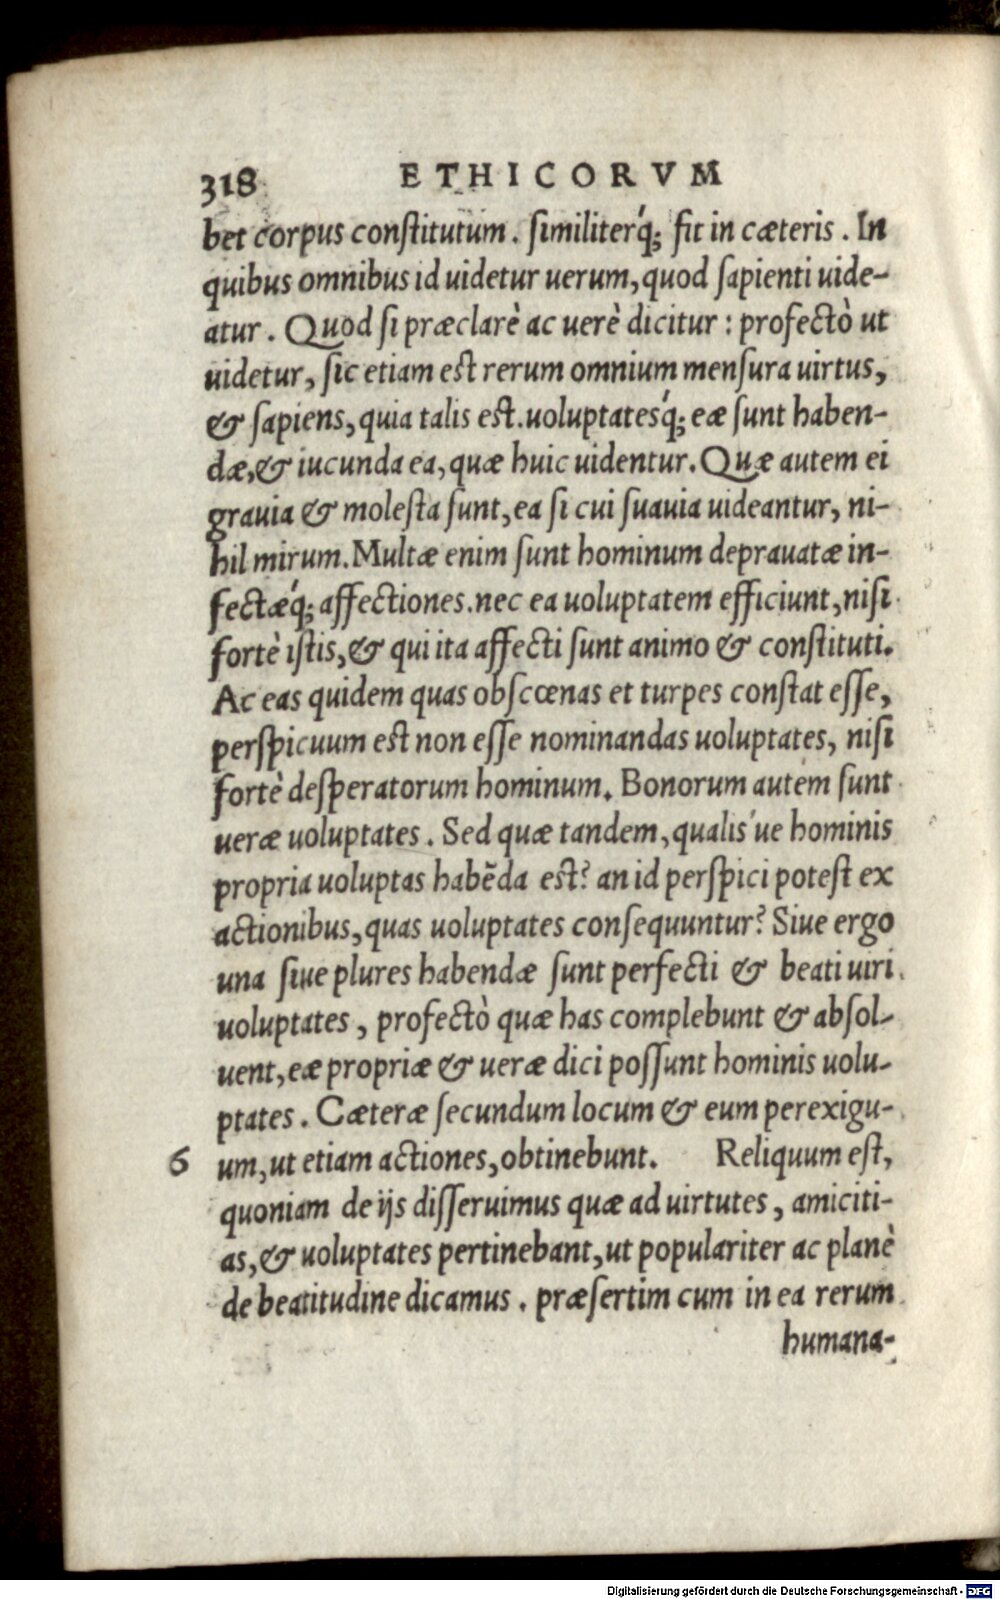 318 ETHICORVM
bet corpus conſtitutum. ſimiliterq́; fit in cæteris. In
quibus omnibus id uidetur uerum, quod ſapienti uide-
atur. Quod ſi præclarè ac uerè dicitur: profectò ut
uidetur, ſic etiam eſt rerum omnium menſura uirtus,
& ſapiens, quia talis eſt. uoluptatesq́; eæ ſunt haben-
dæ, & iucunda ea, quæ huic uidentur. Quæ autem ei
grauia & moleſta ſunt, ea ſi cui ſuauia uideantur, ni-
hil mirum. Multæ enim ſunt hominum deprauatæ in-
fectæq́; affectiones. nec ea uoluptatem efficiunt, niſi
fortè iſtis, & qui ita affecti ſunt animo & conſtituti.
Ac eas quidem quas obſcœnas et turpes conſtat eſſe,
perſpicuum eſt non eſſe nominandas uoluptates, niſi
fortè deſperatorum hominum. Bonorum autem ſunt
ueræ uoluptates. Sed quæ tandem, qualis'ue hominis
propria uoluptas habẽda eſt? an id perſpici poteſt ex
actionibus, quas uoluptates conſequuntur? Siue ergo
una ſiue plures habendæ ſunt perfecti & beati uiri
uoluptates, profectò quæ has complebunt & abſol-
uent, eæ propriæ & ueræ dici poſſunt hominis uolu-
ptates. Cæteræ ſecundum locum & eum perexigu-
6 um, ut etiam actiones, obtinebunt. Reliquum eſt,
quoniam de ijs diſſeruimus quæ ad uirtutes, amiciti-
as, & uoluptates pertinebant, ut populariter ac planè
de beatitudine dicamus. præſertim cum in ea rerum
humana-
Digitalisierung gefördert durch die Deutsche Forschungsgemeinschaft - DFG